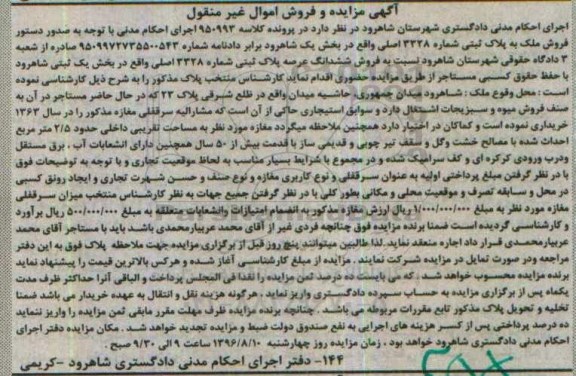 آگهی مزایده و فروش اموال غیر منقول
اجرای احکام مدنی دادگستری شهرستان شاهرود در نظر دارد در پرونده کلاسه ۹۵۰۹۹۳ اجرای احکام مدنی با توجه به صدور دستور
فروش ملک به پلاک ثبتی شماره ۳۳۲۸ اصلی واقع در بخش یک شاهرود برابر دادنامه شماره ۹۵۰۹۹۷۲۷۳۵۵۰۰۵۴۳ صادره از شعبه
۳ دادگاه حقوقی شهرستان شاهرود نسبت به فروش ششدانگ عرصه پلاک ثبتی شماره ۳۳۲۸ اصلی واقع در بخش یک ثبتی شاهرود
با حفظ حقوق کسبی مستاجر از طریق مزایده حضوری اقدام نماید کارشناس منتخب پلاک مذکور را به شرح ذیل کارشناسی نموده
است : محل وقوع ملک : شاهرود میدان جمهوری حاشیه میدان واقع در ظلع شرقی پلاک ۲۳ که در حال حاضر مستاجر در آن به
صنف فروش میوه و سبزیجات اشتغال دارد و سوابق استیجاری حاکی از آن است که مشارالیه سرقفلی مغازه مذکور را در سال ۱۳۶۳
خریداری نموده است و کماکان در اختیار دارد همچنین ملاحظه میگردد مغازه مورد نظر به مساحت تقریبی داخلی حدود ۲/۵ متر مربع
احداث شده با مصالح خشت وگل و سقف تیر چوبی و قدیمی ساز با قدمت بیش از ۵۰ سال همچنین دارای انشعابات آب ، برق مستقل
ودرب ورودی کرکره ای و کف سرامیک شده و در مجموع با شرایط بسیار مناسب به لحاظ موقعیت تجاری و با توجه به توضیحات فوق
با در نظر گرفتن مبلغ پرداختی اولیه به عنوان سرقفلی و نوع کاربری مغازه و نوع صنف و حسن شهرت تجاری و ایجاد رونق کسبی
در محل و سابقه تصرف و موقعیت محلی و مکانی بطور کلی با در نظر گرفتن جمیع جهات به نظر کارشناس منتخب میزان سرقفلی
مغازه مورد نظر به مبلغ ریال ارزش مغازه مذکور به انضمام امتیازات وانشعابات متعلقه به مبلغ ۵۰۰/۰۰۰/۰۰۰ ریال برآورد
و کارشناسی گردیده است ضمنا برنده مزایده فوق چنانچه فردی غیر از آقای محمد عربیارمحمدی باشد باید با مستاجر آقای محمد
عربیارمحمدی قرار داد اجاره منعقد نماید.لذا طالبین میتوانند پنج روز قبل از برگزاری مزایده جهت ملاحظه پلاک فوق به این دفتر
مراجعه ودر صورت تمایل در مزایده شرکت نمایند . مزایده از مبلغ کارشناسی آغاز شده و هرکس بالاترین قیمت را پیشنهاد نماید
برنده مزایده محسوب خواهد شد ; که می بایست ده درصد ثمن مزایده را نقدا فی المجلس پرداخت و الباقی آنرا حداکثر ظرف مدت
یکماه پس از برگزاری مزایده به حساب سپرده دادگستری واریز نماید . هرگونه هزینه نقل و انتقال به عهده خریدار می باشد ضمنا
تخلیه و تحویل پلاک مذکور تابع مقررات مربوطه می باشد . چنانچه برنده مزایده ظرف مهلت مقرر مابقی ثمن مزایده را واریز ننماید
ده درصد پرداختی پس از کسر هزینه های اجرایی به نفع صندوق دولت ضبط و مزایده تجدید خواهد شد . مکان مزایده دفتر اجرای
احکام مدنی دادگستری شاهرود خواهد بود . زمان مزایده روز چهارشنبه ۱۳۹۶/۸/۱۰ ساعت ۹ الی ۹/۳۰ صبح .
۱۴۴- دفتر اجرای احکام مدنی دادگستری شاهرود -کریمی